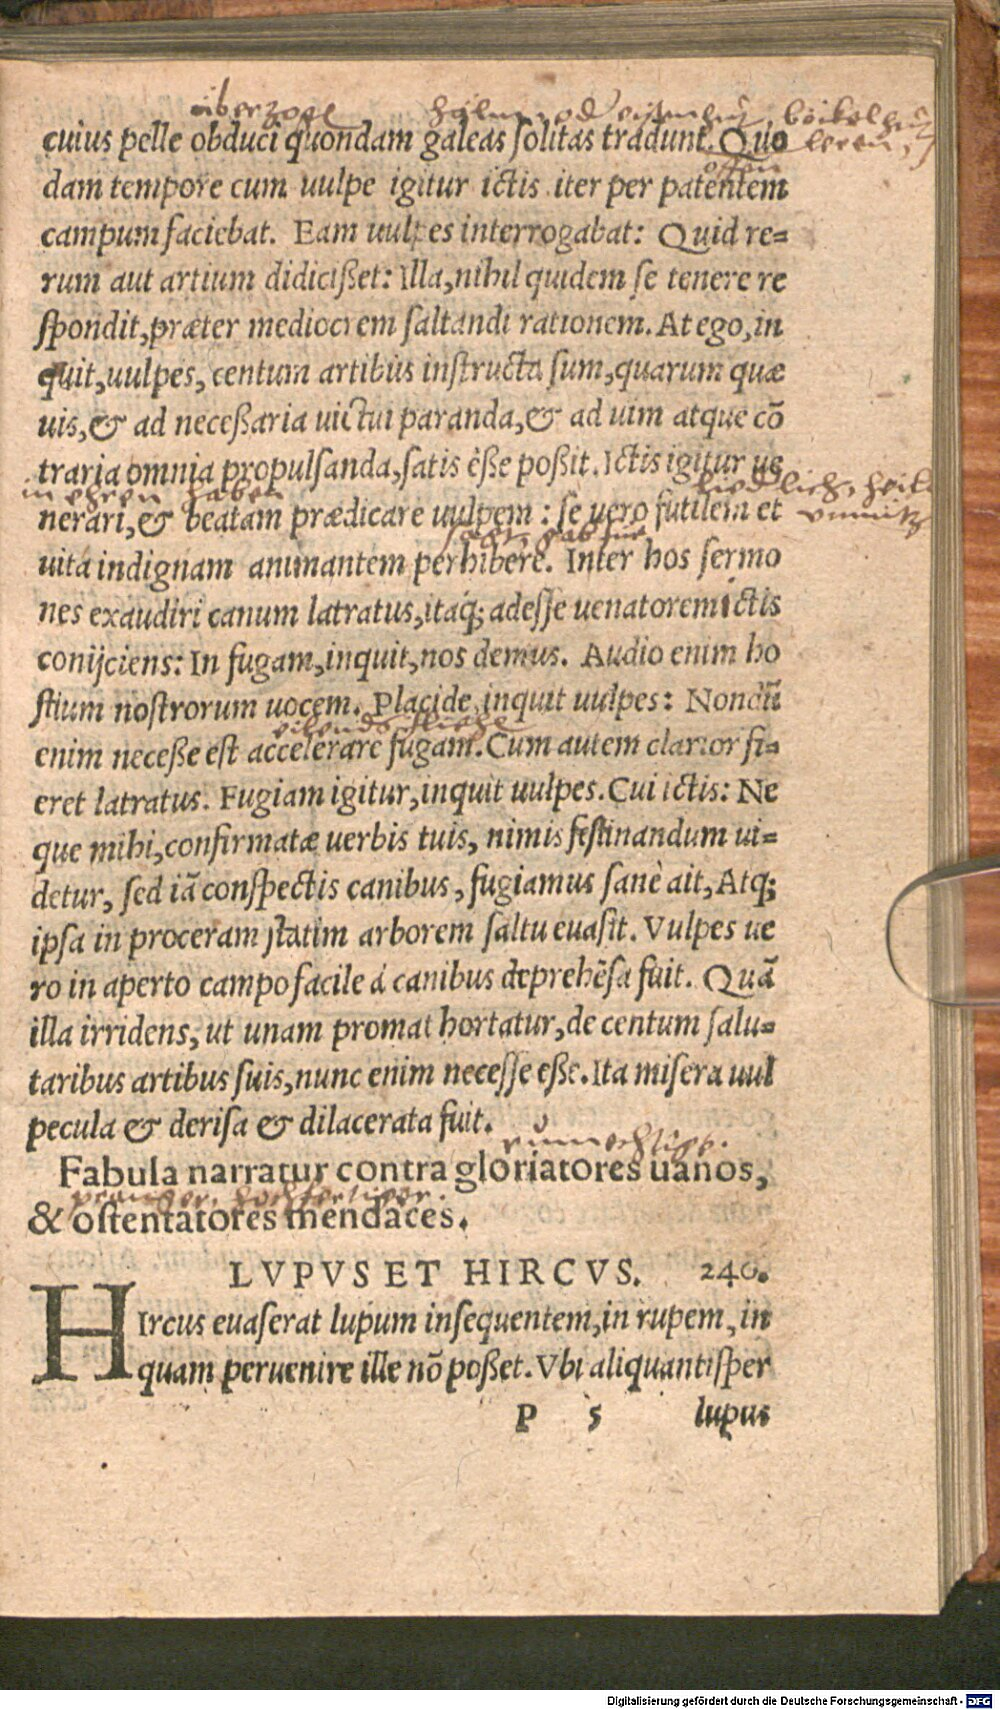 überzogē
cuius pelle obduci quondam galeas solitas tradunt. Quo
offen
dam tempore cum uulpe igitur ictis iter per patentem
campum faciebat. Eam uulpes interrogabat: Quid re=
rum aut artium didicißet: Illa, nihil quidem se tenere re
spondit, præter mediocrem saltandi rationem. At ego, in
quit, uulpes, centum artibus instructa sum, quarum quæ
uis, & ad neceßaria uictui paranda, & ad uim atque cō
traria omnia propulsanda, satis eße poßit. Ictis igitur ue
in ehren haben
nerari, & beatam prædicare uulpem: se uero futilem et
uita indignam animantem perhibere. Inter hos sermo
nes exaudiri canum latratus, itaq; adesse uenatorem ictis
conijciens: In fugam, inquit, nos demus. Audio enim ho
stium nostrorum uocem. Placide, inquit uulpes: Nondū
enim neceße est accelerare fugam. Cum autem clarior fi=
eret latratus. Fugiam igitur, inquit uulpes. Cui ictis: Ne
que mihi, confirmatæ uerbis tuis, nimis festinandum ui=
detur, sed iā conspectis canibus, fugiamus sanè ait, Atq;
ipsa in proceram statim arborem saltu euasit. Vulpes ue
ro in aperto campo facile à canibus deprehēsa fuit. Quā
illa irridens, ut unam promat hortatur, de centum salu=
taribus artibus suis, nunc enim necesse eße. Ita misera uul
pecula & derisa & dilacerata fuit.
Fabula narratur contra gloriatores uanos,
& ostentatores mendaces.
LVPVS ET HIRCVS. 240.
HIrcus euaserat lupum insequentem, in rupem, in
quam peruenire ille nō poßet. Vbi aliquantisper
P 5 lupus
Digitalisierung gefördert durch die Deutsche Forschungsgemeinschaft - DFG